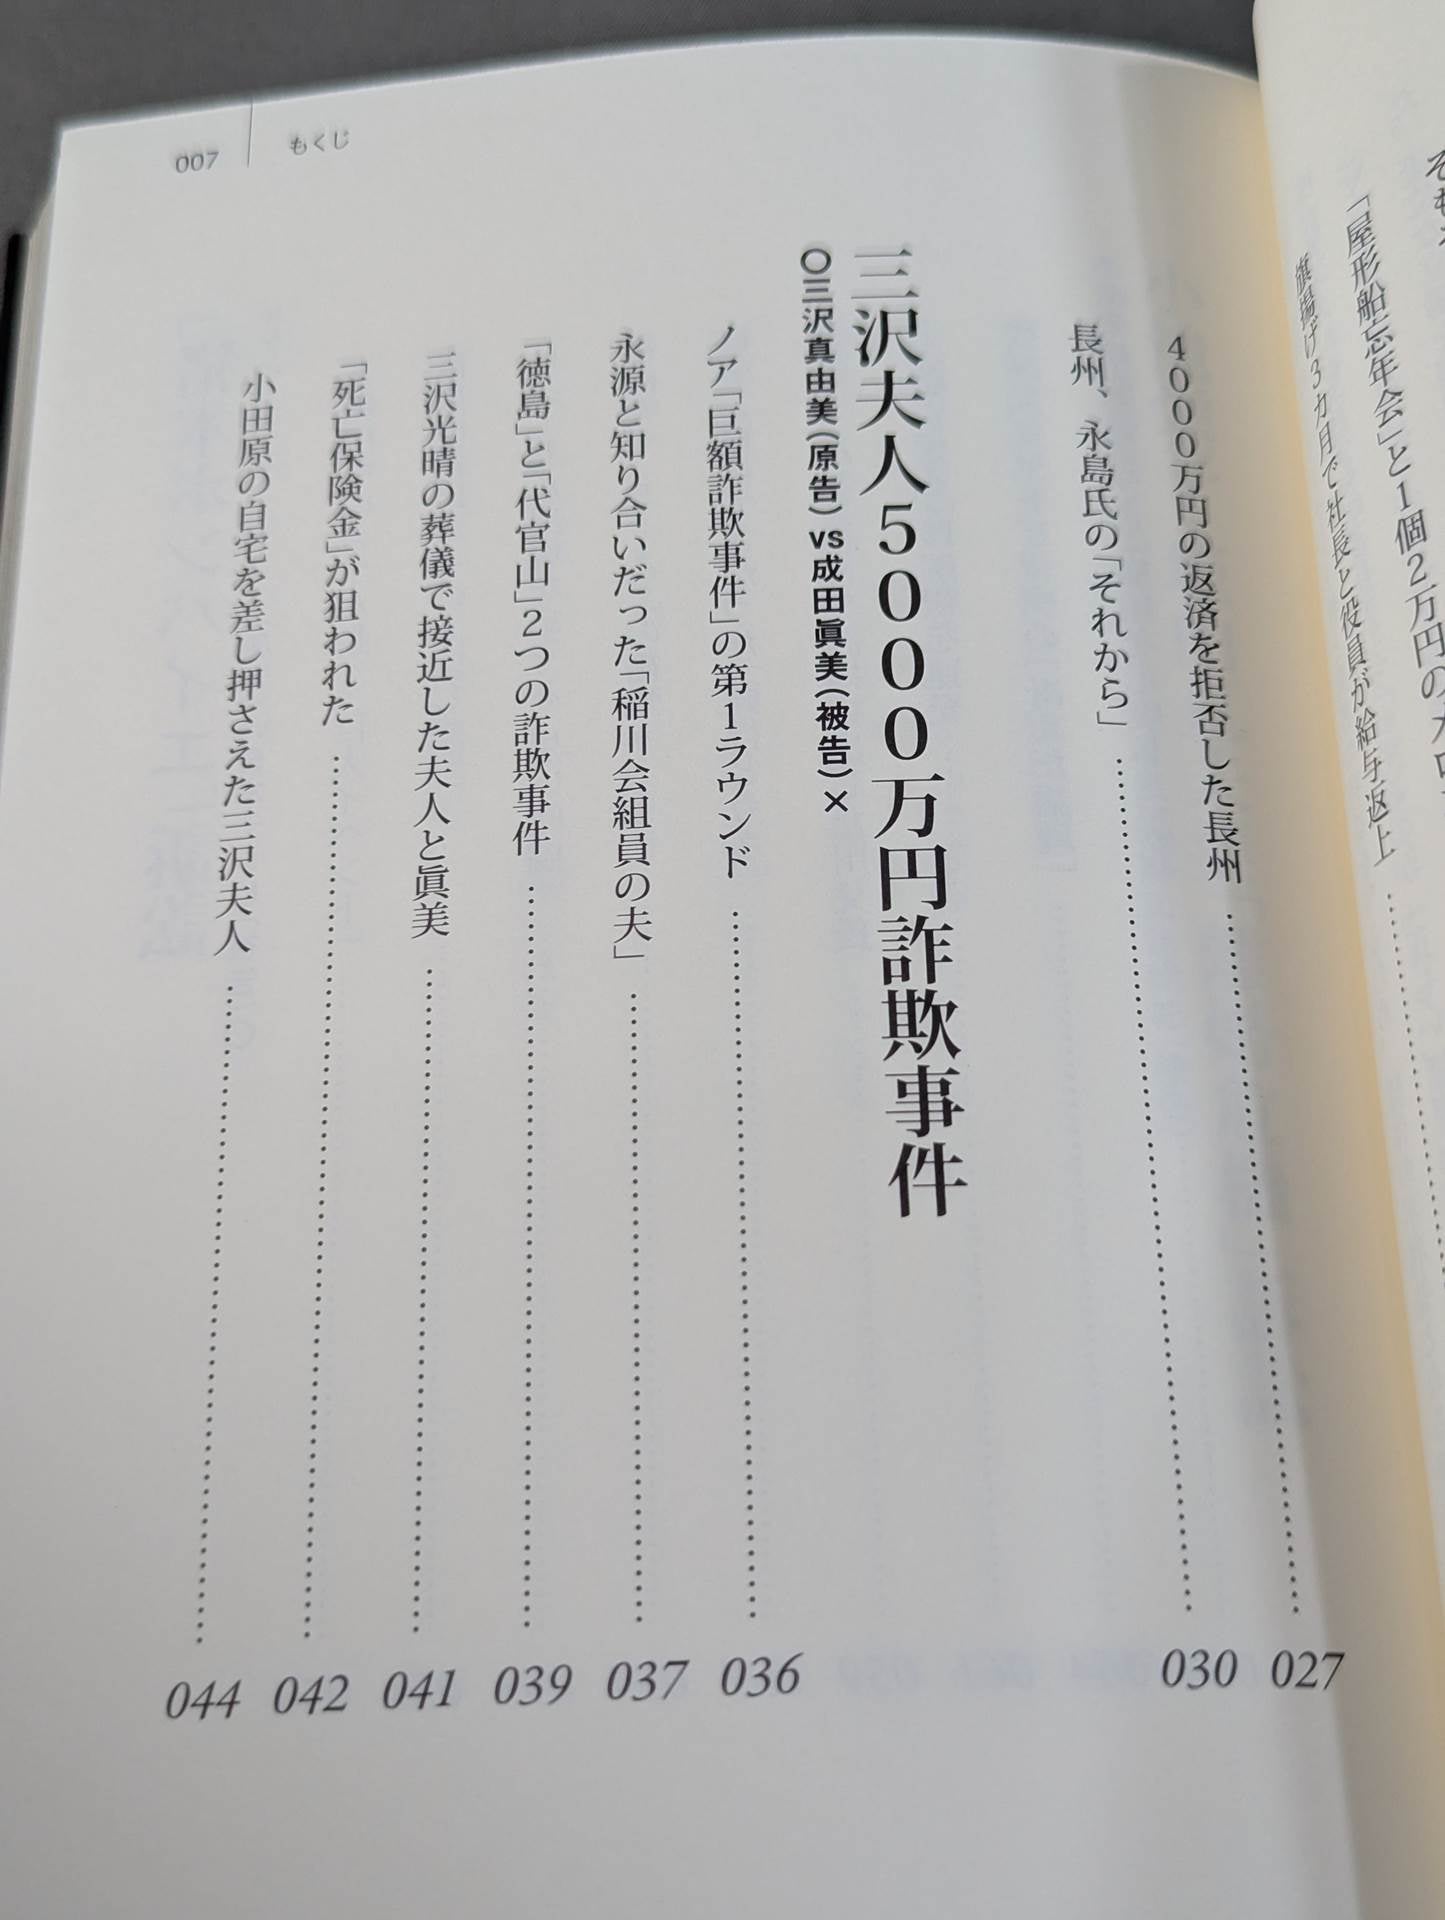 「屋形船忘年会」と1個2万円の
旗揚げ3カ月で社長と役員が給与返上
4000万円の返済を拒否した長州
027
長州、永島氏の「それから」
030
三沢夫人5000万円詐欺事件
〇三沢真由美(原告)vs成田眞美(被告)×
ノア「巨額詐欺事件」の第1ラウンド
036
永源と知り合いだった「稲川会組員の夫」
037
「徳島」と「代官山」2つの詐欺事件
039
三沢光晴の葬儀で接近した夫人と眞美
041
「死亡保険金」が狙われた
042
小田原の自宅を差し押さえた三沢夫人
044
もくじ
007